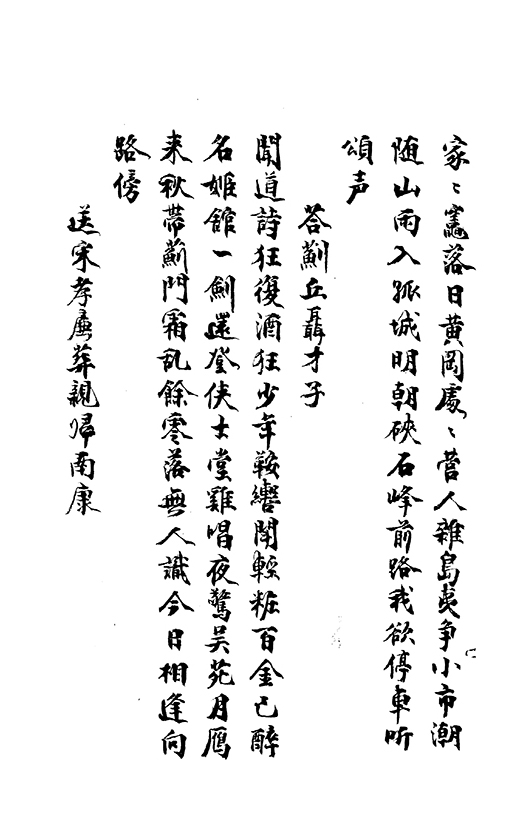 家〻竈落日黄岡處〻营人雜島夷争小市潮
随山雨入孤城明朝硤石峰前路我欲停車听
頌声
荅薊丘聶才子
聞道詩狂復酒狂少年鞍轡鬥輕粧百金已醉
名姬館一劍還登俠士堂雞唱夜驚吴苑月鴈
来秋帶薊門霜乱餘零落無人識今日相逢向
路傍
送宋孝廉葬親歸南康